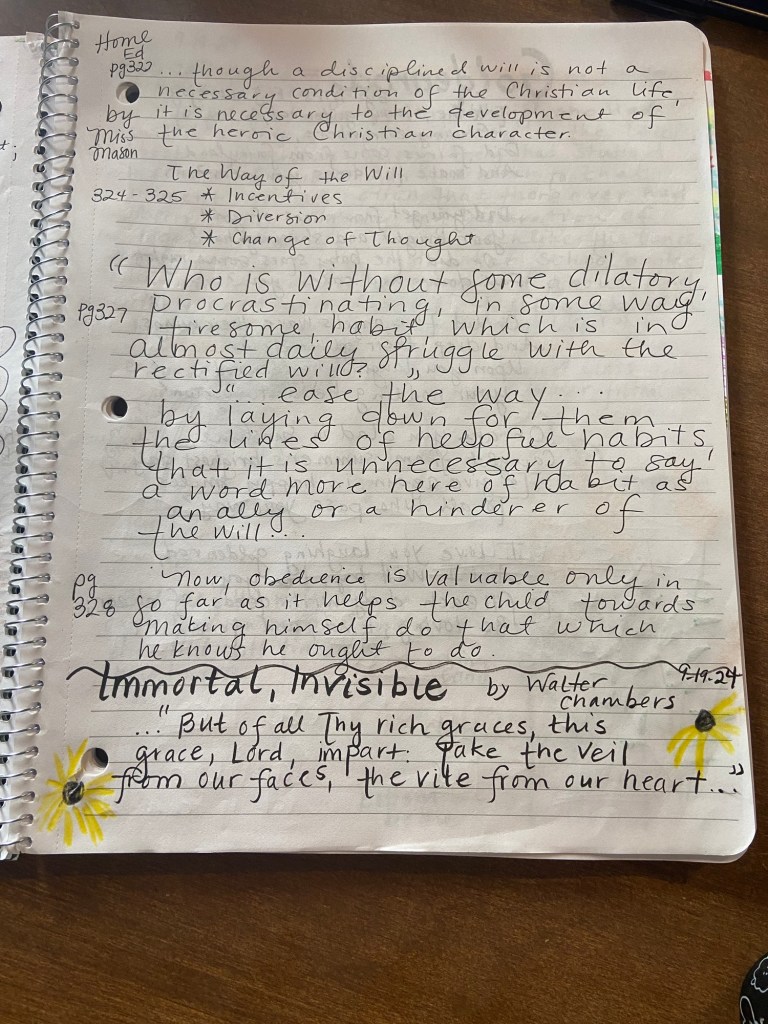 Home
Ed
pg322 ... though a disciplined will is not a
necessary condition of the Christian life,
by it is necessary to the development of
Miss the heroic Christian character.
Mason
The Way of the Will
324-325 * Incentives
* Diversion
* Change of Thought
"Who is without some dilatory,
pg327 procrastinating, in some way
tiresome habit, which is in
almost daily struggle with the
rectified will?"
"... ease the way...
by laying down for them
the lines of helpful habits,
that it is unnecessary to say
a word more here of habit as
an ally or a hinderer of
the will...
pg Now, obedience is valuable only in
328 so far as it helps the child towards
making himself do that which
he knows he ought to do.
9-19-24
Immortal, Invisible by Walter
Chambers
..." But of all Thy rich graces, this
grace, Lord, impart: Take the veil
from our faces, the vile from our heart..."